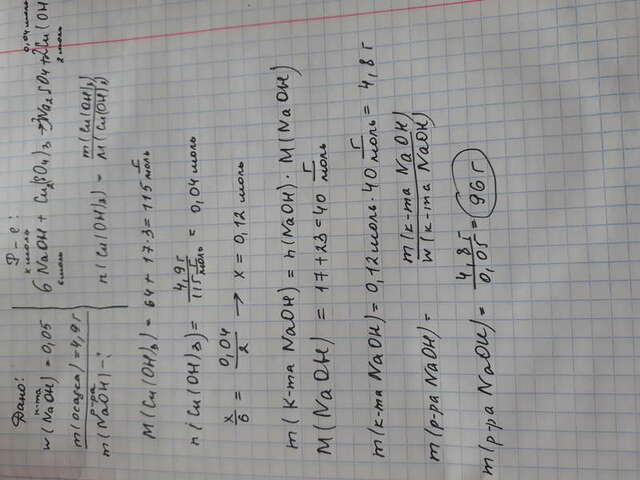 Дано:
к-та
w(NaOH) = 0,05
m(осадка) = 4,9 г
р-ра
m(NaOH) - ?
Р-е:
x моль 0,04 моль
6 NaOH + Cu2(SO4)3 → 3Na2SO4 + 2Cu(OH
6 моль 2 моль
n(Cu(OH)3) = m(Cu(OH)3) / M(Cu(OH)3)
M(Cu(OH)3) = 64 + 17·3 = 115 г/моль
n(Cu(OH)3) = 4,9 г / 115 г/моль = 0,04 моль
x/6 = 0,04/2 → x = 0,12 моль
m(к-та NaOH) = n(NaOH) · M(NaOH)
M(NaOH) = 17+23 = 40 г/моль
m(к-та NaOH) = 0,12 моль · 40 г/моль = 4,8 г
m(р-ра NaOH) = m(к-та NaOH) / w(к-та NaOH)
m(р-ра NaOH) = 4,8 г / 0,05 = 96 г